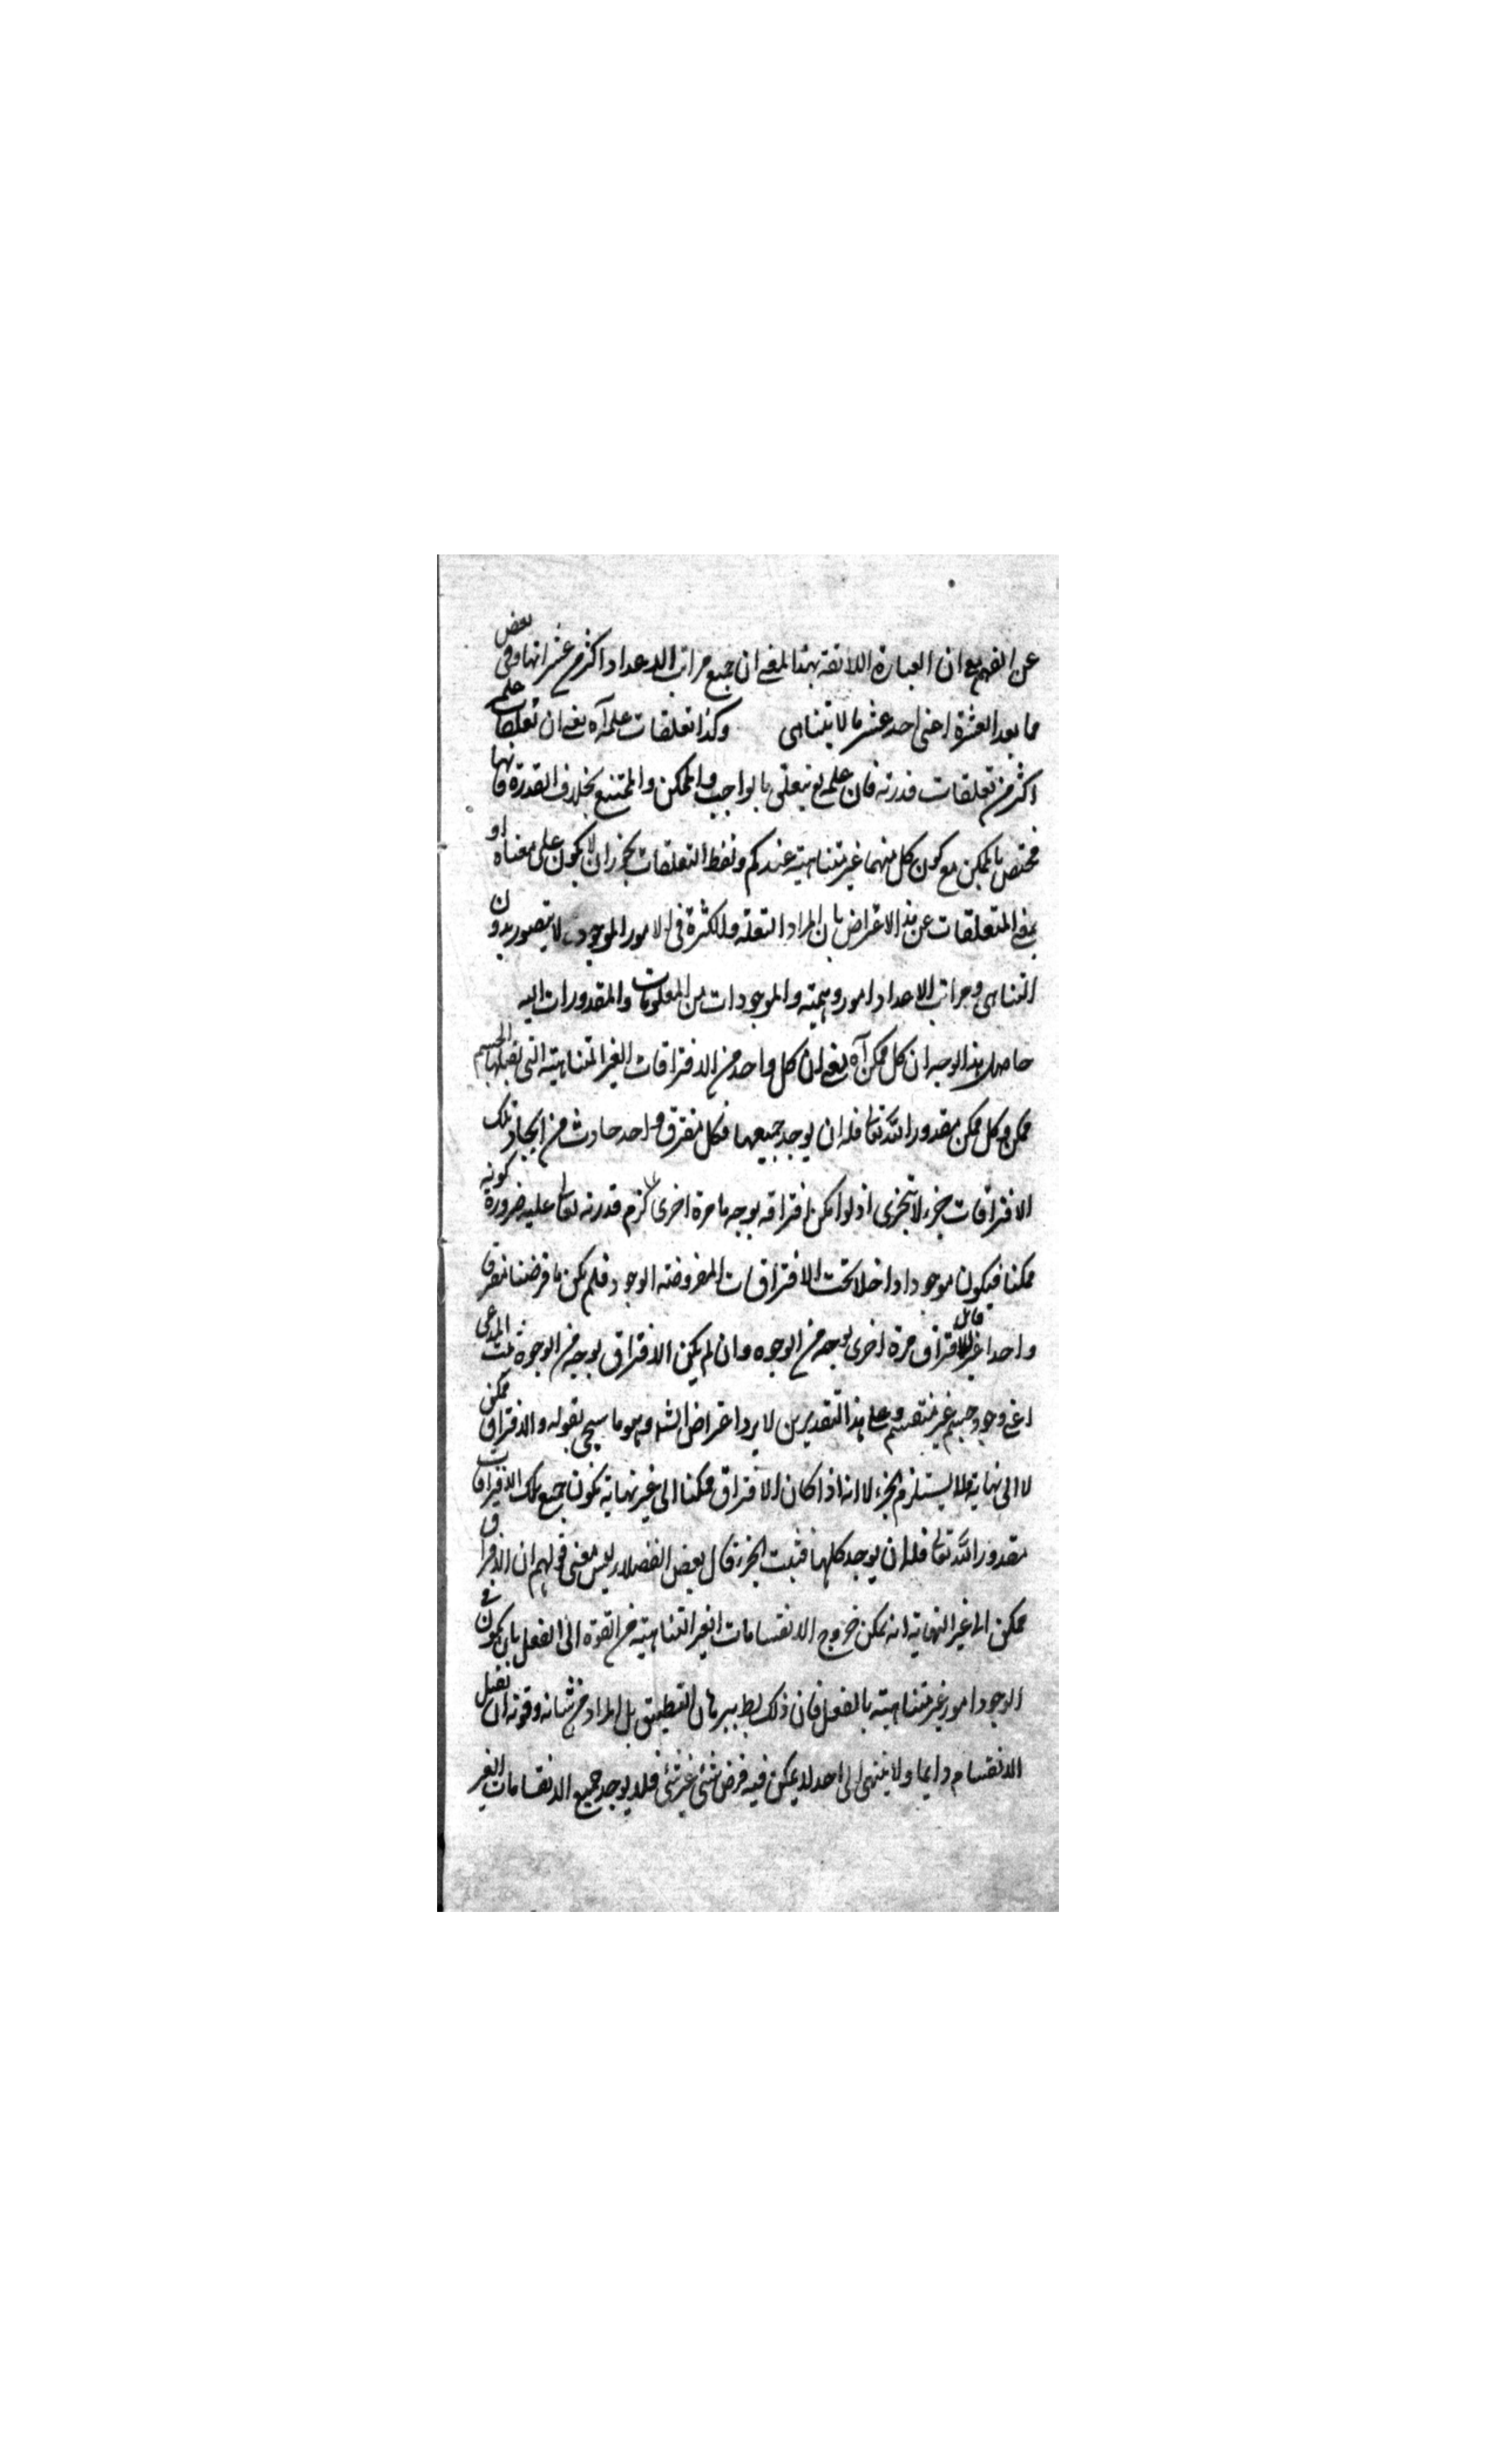 عن الفهم مع ان العبارة اللائقة بهذا المعنى ان جميع مراتب الاعداد اكثر من عشراتها وفي بعض
ما بعد العشرة اعنى احد عشر ما لا يتناهى وكذا تعلقات علمه آه يعنى ان تعلقات علمه
اكثر من تعلقات قدرته فان علمه تع يتعلق بالواجب والممكن والممتنع بخلاف القدرة فانها
تختص بالممكن مع كون كل منهما غير متناهية عندكم ولفظ التعلقات يجوز ان لا يكون على معناه او
بمعنى المتعلقات عن هذا الاعتراض بان المراد القلة والكثرة فى الامور الموجودة لا يتصور بدون
التناهى ومراتب الاعداد امور وهمية والموجودات من المعلومات والمقدورات اليه
حاصل هذا الوجه ان كل ممكن آه يعنى ان كل واحد من الافتراقات الغير المتناهية التى تقبلها الجسم
ممكن وكل ممكن مقدور الله تعالى فله ان يوجد جميعها فكل مفترق واحد حادث من ايجاد تلك
الافتراقات جزء لا يتجزى اذ لو امكن افتراقه بوجه ما مرة اخرى لزم قدرته تعالى عليه ضرورة كونه
ممكنا فيكون موجودا داخلا تحت الافتراقات المفروضة الوجود فلم يكن ما فرضنا مفترقا
واحدا غير قابل للافتراق مرة اخرى بوجه من الوجوه وان لم يكن الافتراق بوجه من الوجوه ثبت المدعى
اعنى وجود جسم غير منقسم وعلى هذا التقديرين لا يرد اعتراض الش وهو ما سيجى بقوله والافتراق ممكن
لا الى نهاية فلا يستلزم الجزء لانه اذا كان الافتراق ممكنا الى غير نهاية يكون جميع تلك الافتراقات
مقدور الله تعالى فله ان يوجد كلها فثبت الجزء قال بعض الفضلاء ليس معنى قولهم ان الافتراق
ممكن الى غير النهاية انه يمكن خروج الانقسامات الغير المتناهية من القوة الى الفعل بان يكون فى
الوجود امور غير متناهية بالفعل فان ذلك بط ببرهان التطبيق بل المراد من شانه وقوته ان يقبل
الانقسام دايما ولا ينتهى الى حد لا يمكن فيه فرض شئ غير شئ فلا يوجد جميع الانقسامات الغير